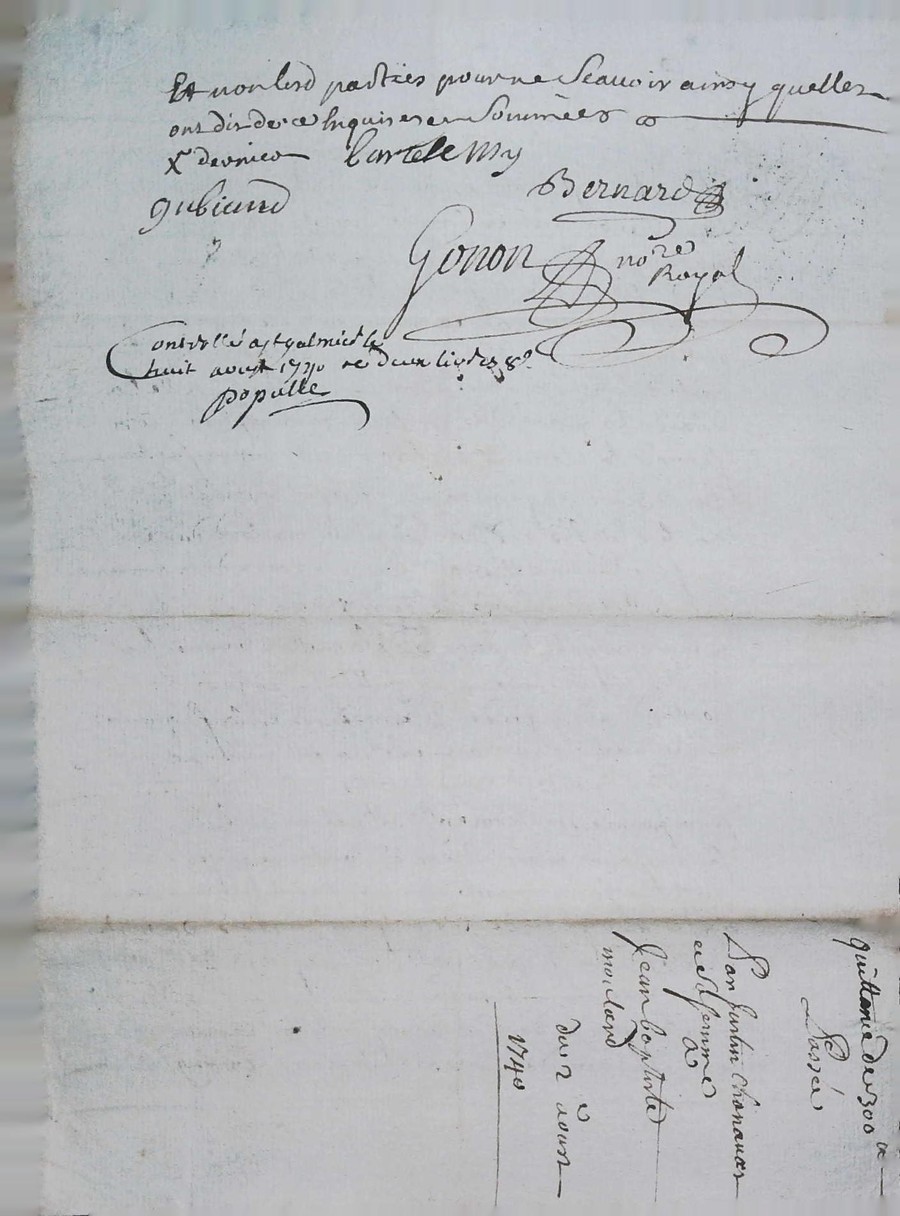 Et non lesd parties pour ne Scavoir ainsy quelles
ont dit de ce Enquises et Sommées
Bartelemy
Jubiand Bernard
Gonon no.re
Royal
Controllé a st galmier le
huit aoust 1740 re deux livres 8s
populle
quittance de 300 lt
Passée
Par Jean
et Sa femme
a
Jean baptiste
moulard
du 2e aoust
1740